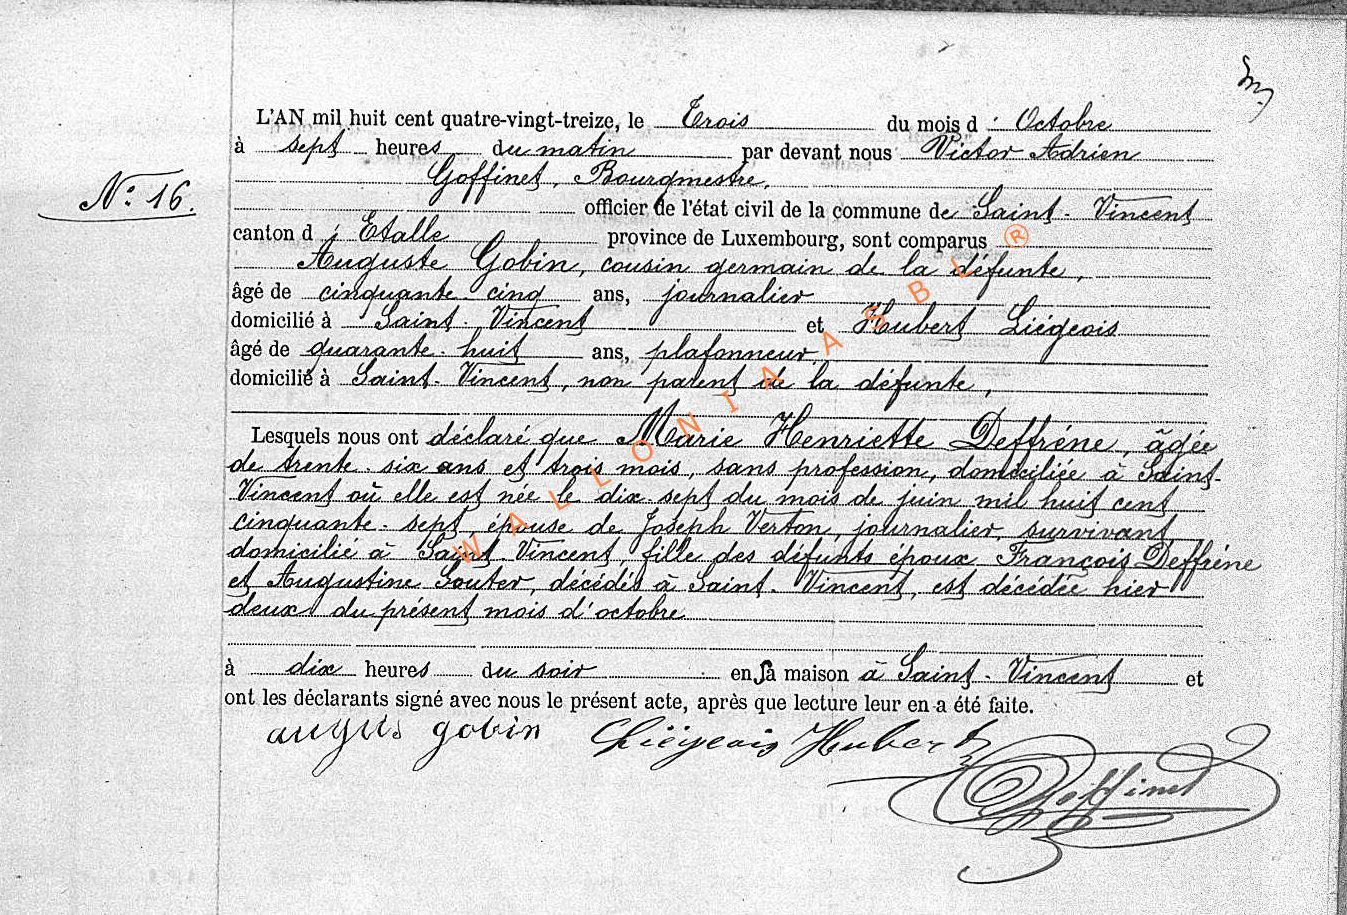 L'AN mil huit cent quatre-vingt-treize, le Trois du mois d' Octobre
à sept heures du matin par devant nous Victor Adrien
Goffinet, Bourgmestre,
N.° 16.
officier de l'état civil de la commune de Saint-Vincent
canton d' Etalle province de Luxembourg, sont comparus
Auguste Gobin, cousin germain de la défunte,
âgé de cinquante-cinq ans, journalier
domicilié à Saint-Vincent et Hubert Liégeois
âgé de quarante-huit ans, plafonneur,
domicilié à Saint-Vincent, non parent de la défunte,
Lesquels nous ont déclaré que Marie Henriette Deffréne, âgée
de trente-six ans et trois mois, sans profession, domiciliée à Saint-
Vincent où elle est née le dix-sept du mois de juin mil huit cent
cinquante-sept, épouse de Joseph Verton, journalier, survivant,
domicilié à Saint Vincent, fille des défunts époux François Deffréne
et Augustine Souter, décédés à Saint-Vincent, est décédée hier
deux du présent mois d'octobre
à dix heures du soir en sa maison à Saint-Vincent et
ont les déclarants signé avec nous le présent acte, après que lecture leur en a été faite.
augus gobin Liégeois Hubert
Goffinet
WALLONIA ASBL ®